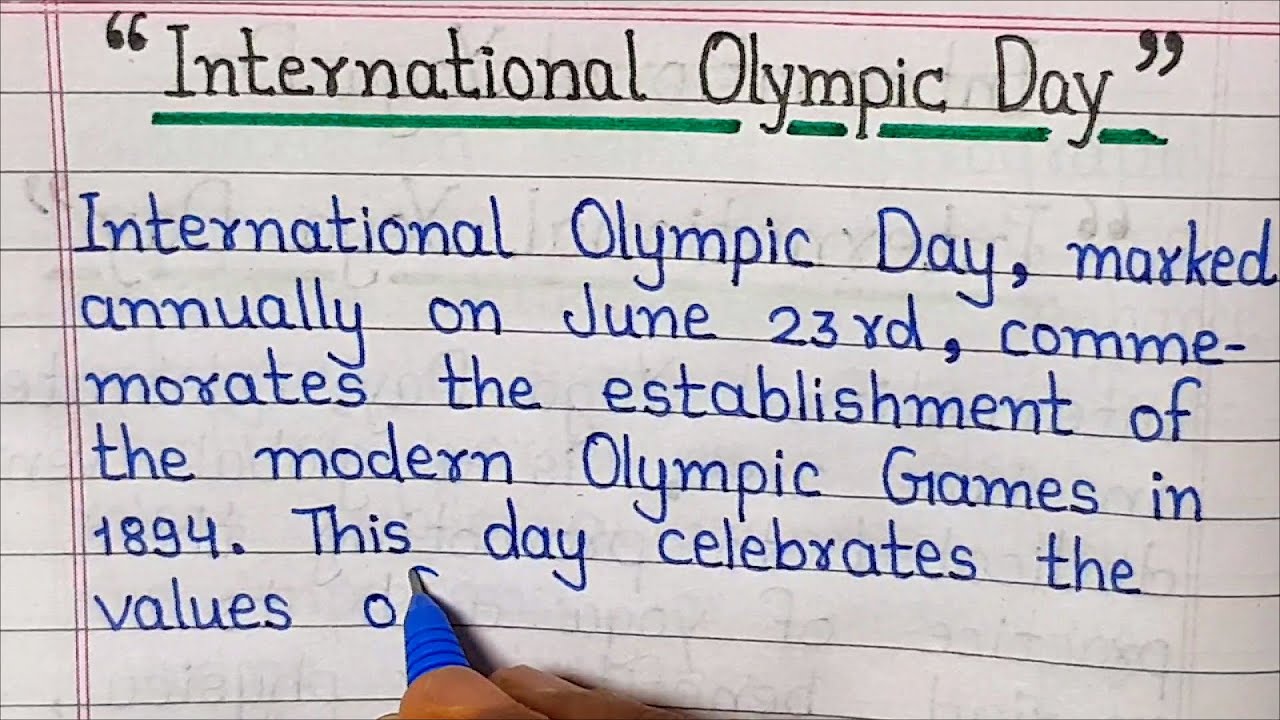 “International Olympic Day”
International Olympic Day, marked
annually on June 23rd, comme-
morates the establishment of
the modern Olympic Games in
1894. This day celebrates the
values